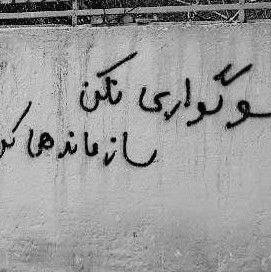 سوگواری نکن
سازماندهی کن